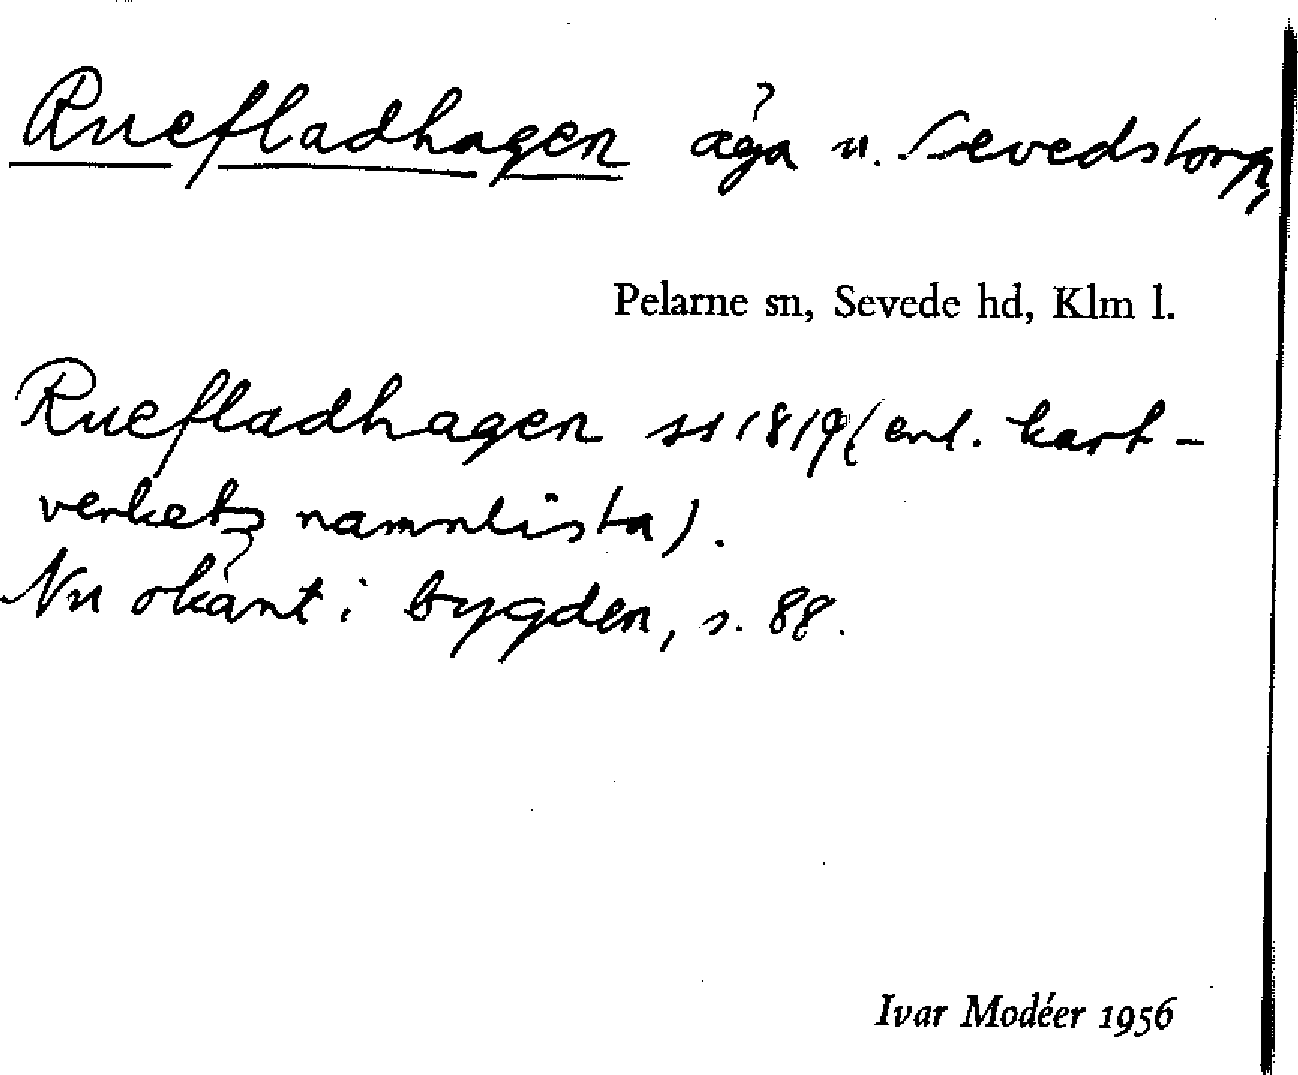 Ruefladhagen äga u. Sevedstorp,
Pelarne sn, Sevede hd, Klm l.
Ruefladhagen ss 1819 (enl. kart-
verkets namnlista).
Nu okänt i bygden, s. 88.
Ivar Modéer 1956